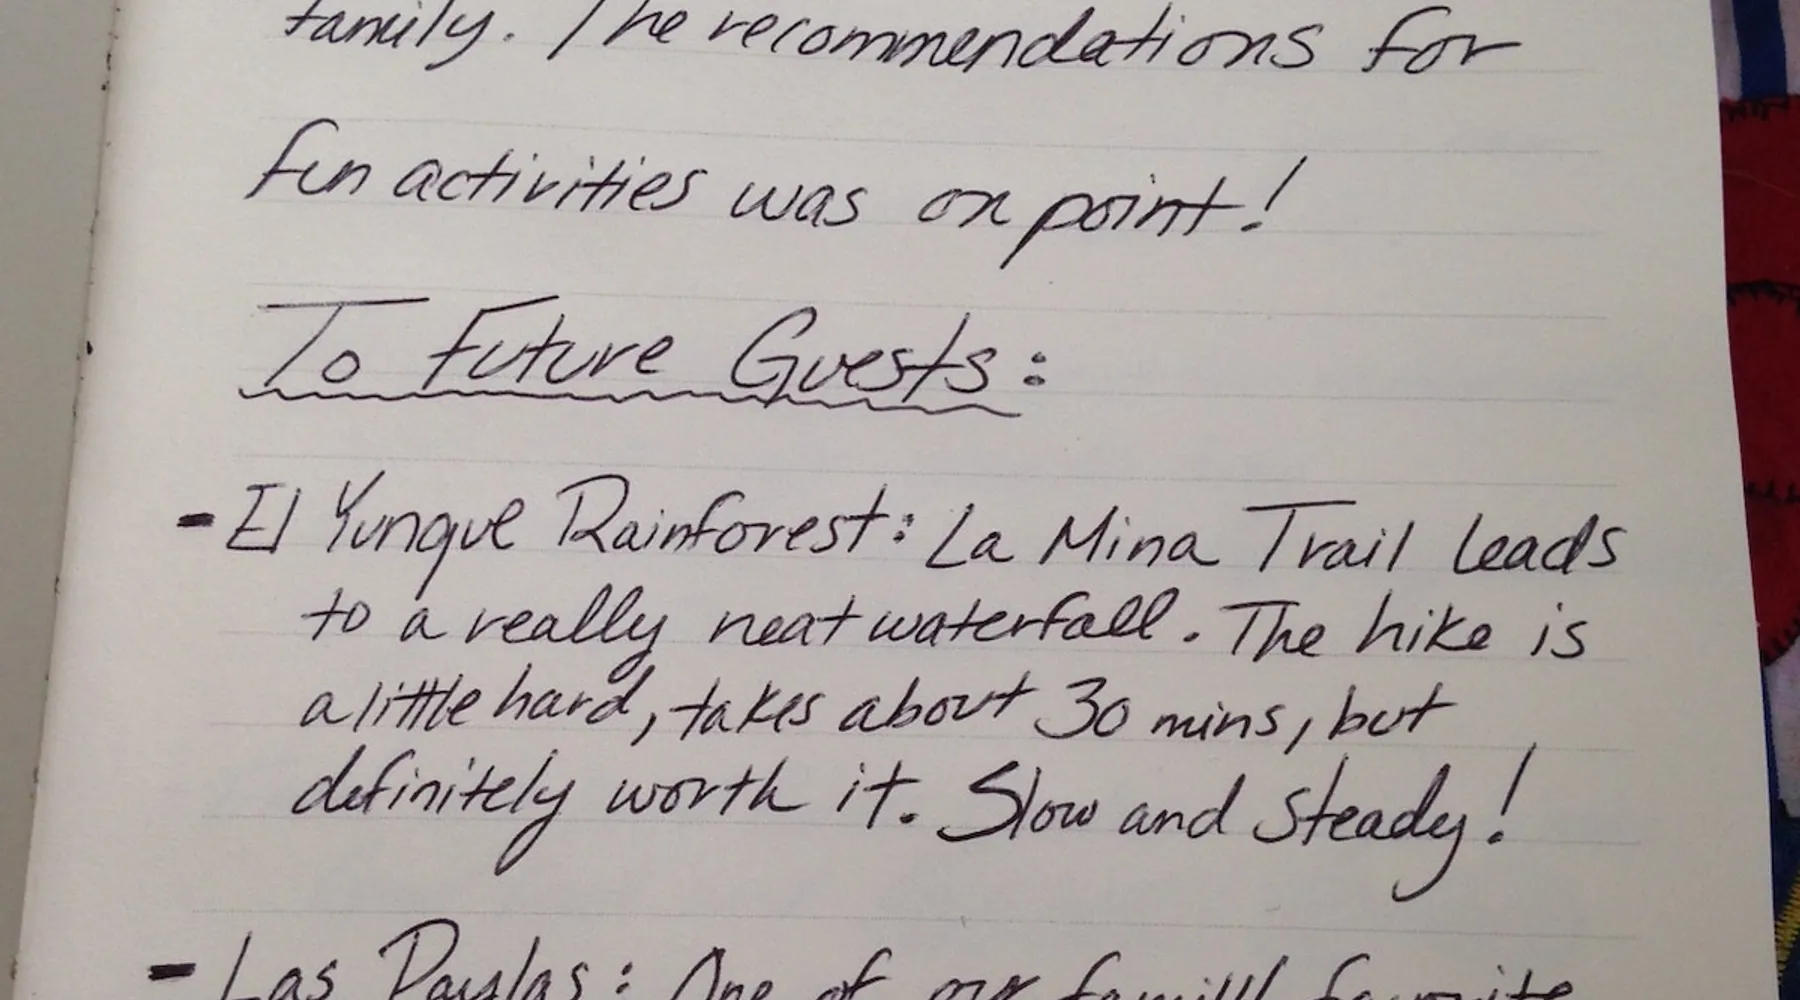 family. The recommendations for
fun activities was on point!
To Future Guests:
- El Yunque Rainforest: La Mina Trail leads
to a really neat waterfall. The hike is
a little hard, takes about 30 mins, but
definitely worth it. Slow and steady!
- Las Paylas: One of our favorite